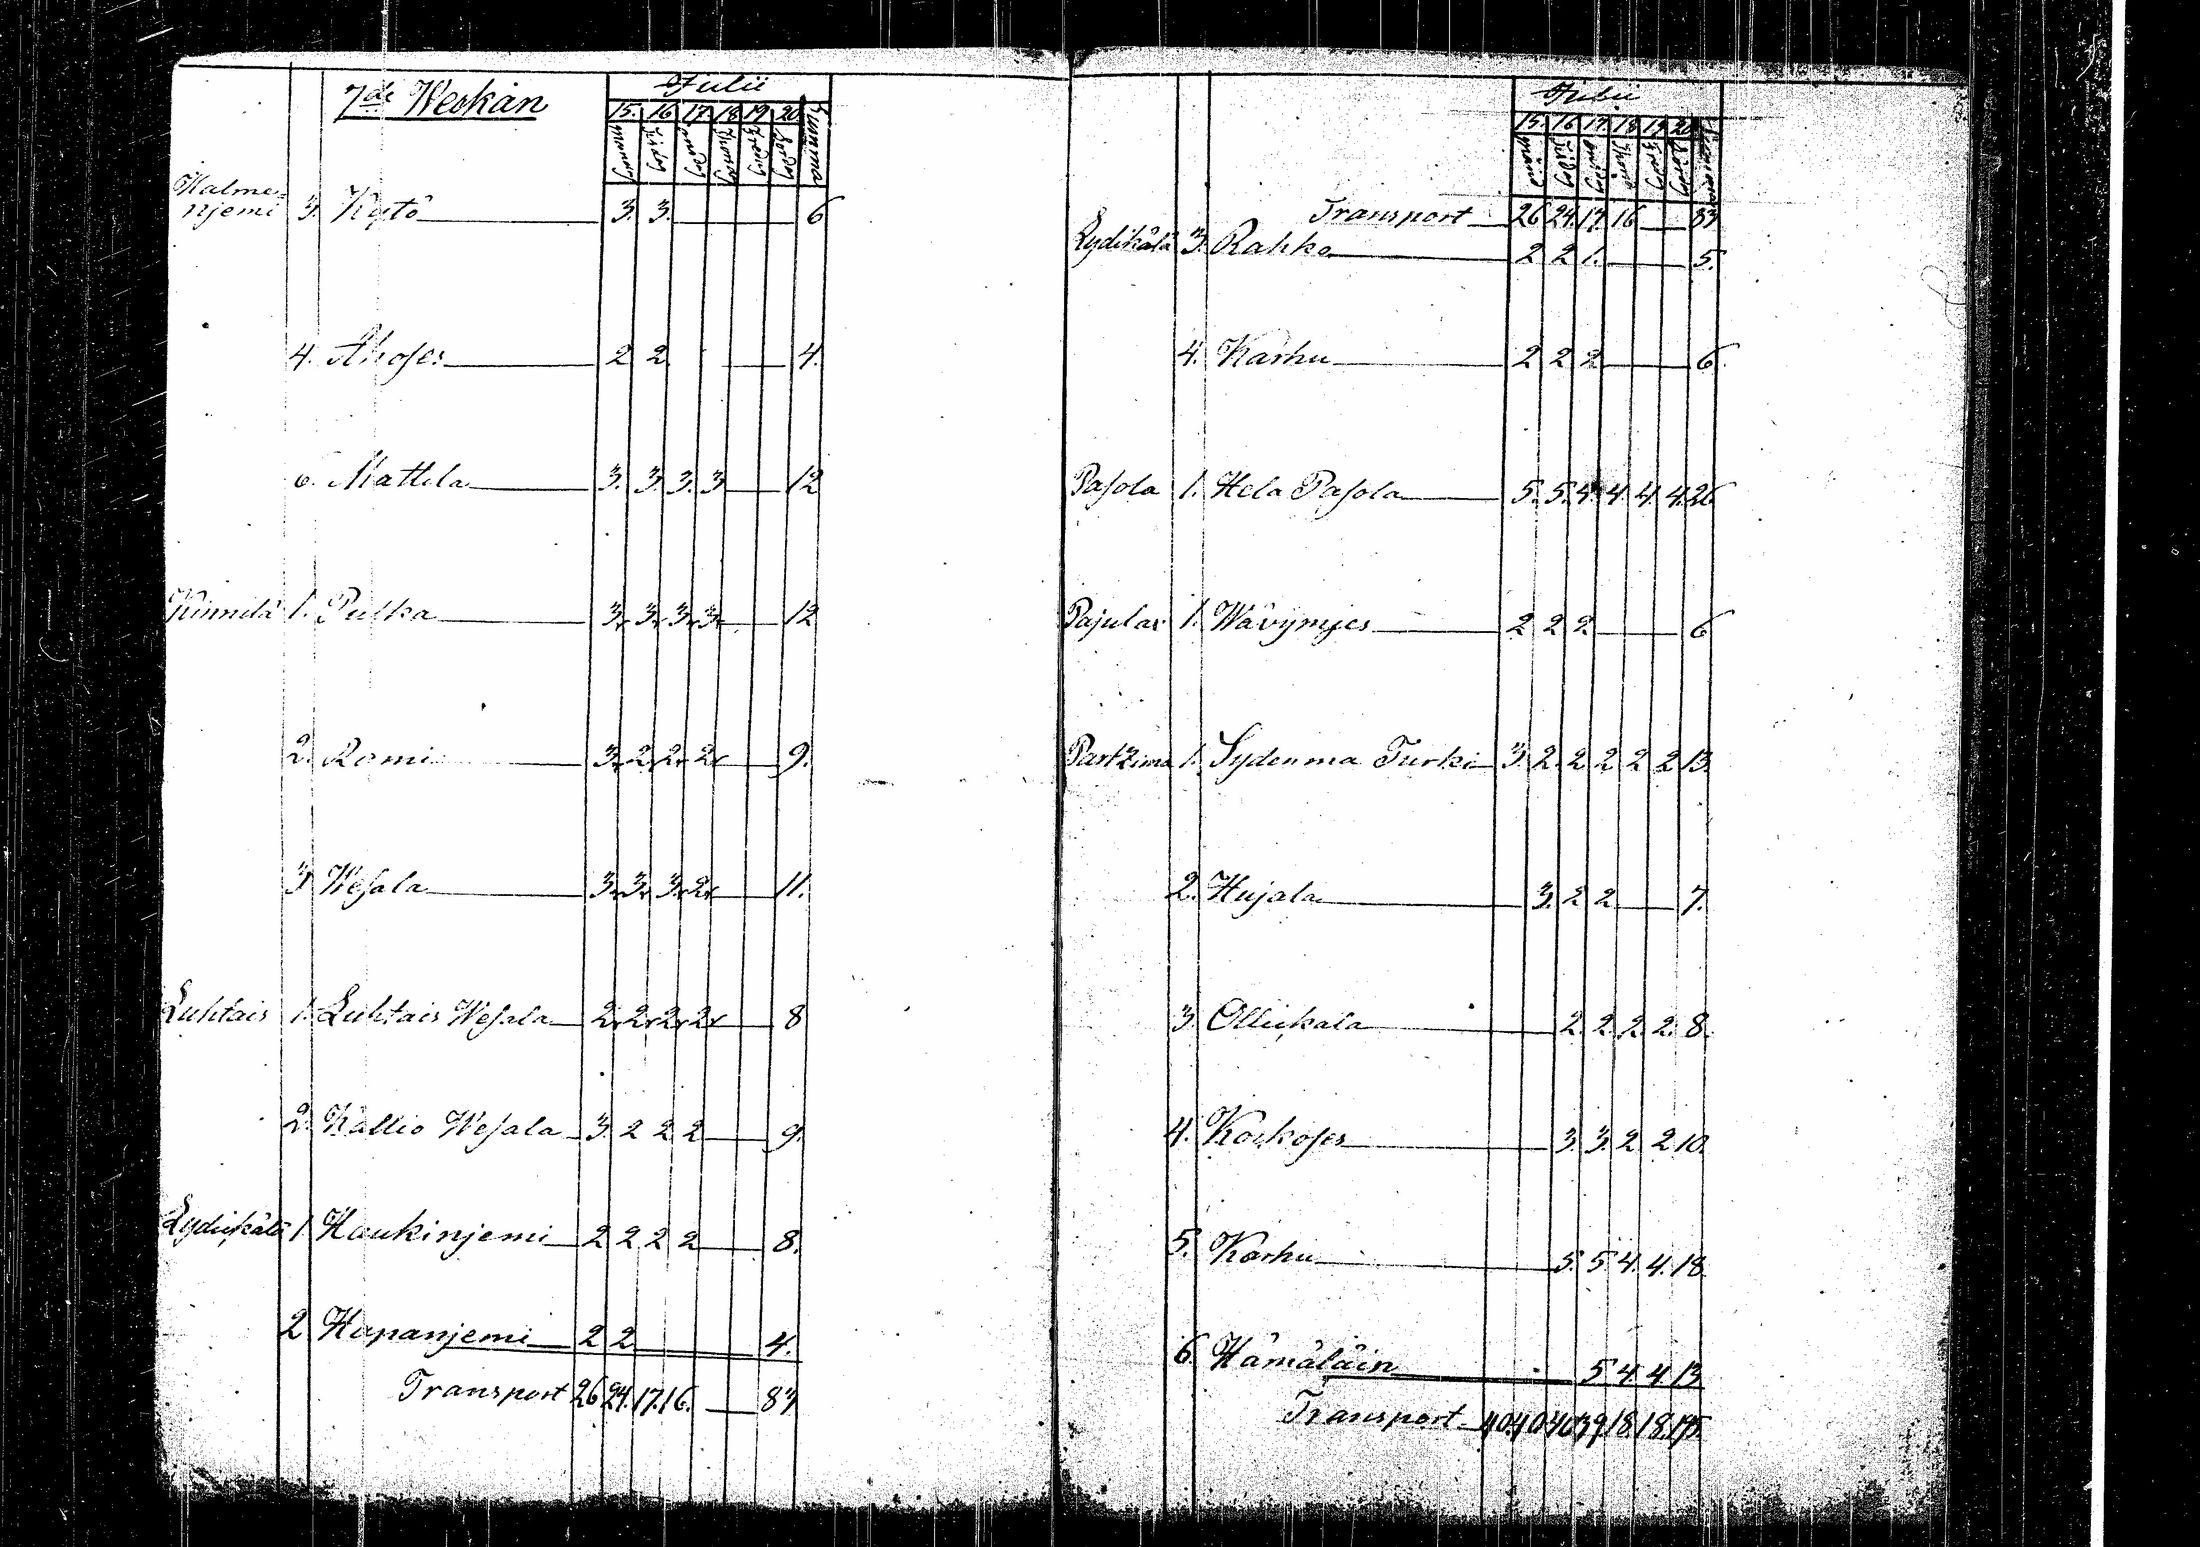 7de Weckan Julii
15. 16 17 18 19 20 Summa
Kalme-
njemi 3. Kytö 3. 3. 6
4. Ahoses 2 2 4.
6. Mattila 3. 3. 3. 3 12
Kinnilä 1. Pulka 3 3 3 3 12
2. Romi 3 2 2 2 9.
3 Wesala 3 3 3 2 11.
Luhtais 1. Luhtais Wesala 2 2 2 2 8
2. Kallio Wesala 3. 2 2 2 9.
Lydikälä 1 Haukinjemi 2 2 2 2 8.
2 Hapanjemi 2 2 4.
Transport 26 24. 17. 16. 83
Julii
15. 16 17. 18 19 20
Transport 26 24. 17. 16 83
Lydikälä 3. Rahko 2 2 1. 5.
4. Karhu 2 2 2 6.
Pasola 1. Hela Pasola 5. 5. 4. 4. 4. 4. 26
Pajulax 1. Wävynjes 2 2 2 6
Partzima 1. Sydenma Turki 3. 2. 2 2 2 2 13.
2. Hujala 3. 2 2 7.
3. Ollikala 2. 2. 2. 2. 8.
4. Koskoses 3. 3. 2 2 10.
5. Karhu 5. 5 4. 4. 18.
6. Hämäläin 5 4. 4. 13
Transport 40. 40 40 39 18. 18. 195.